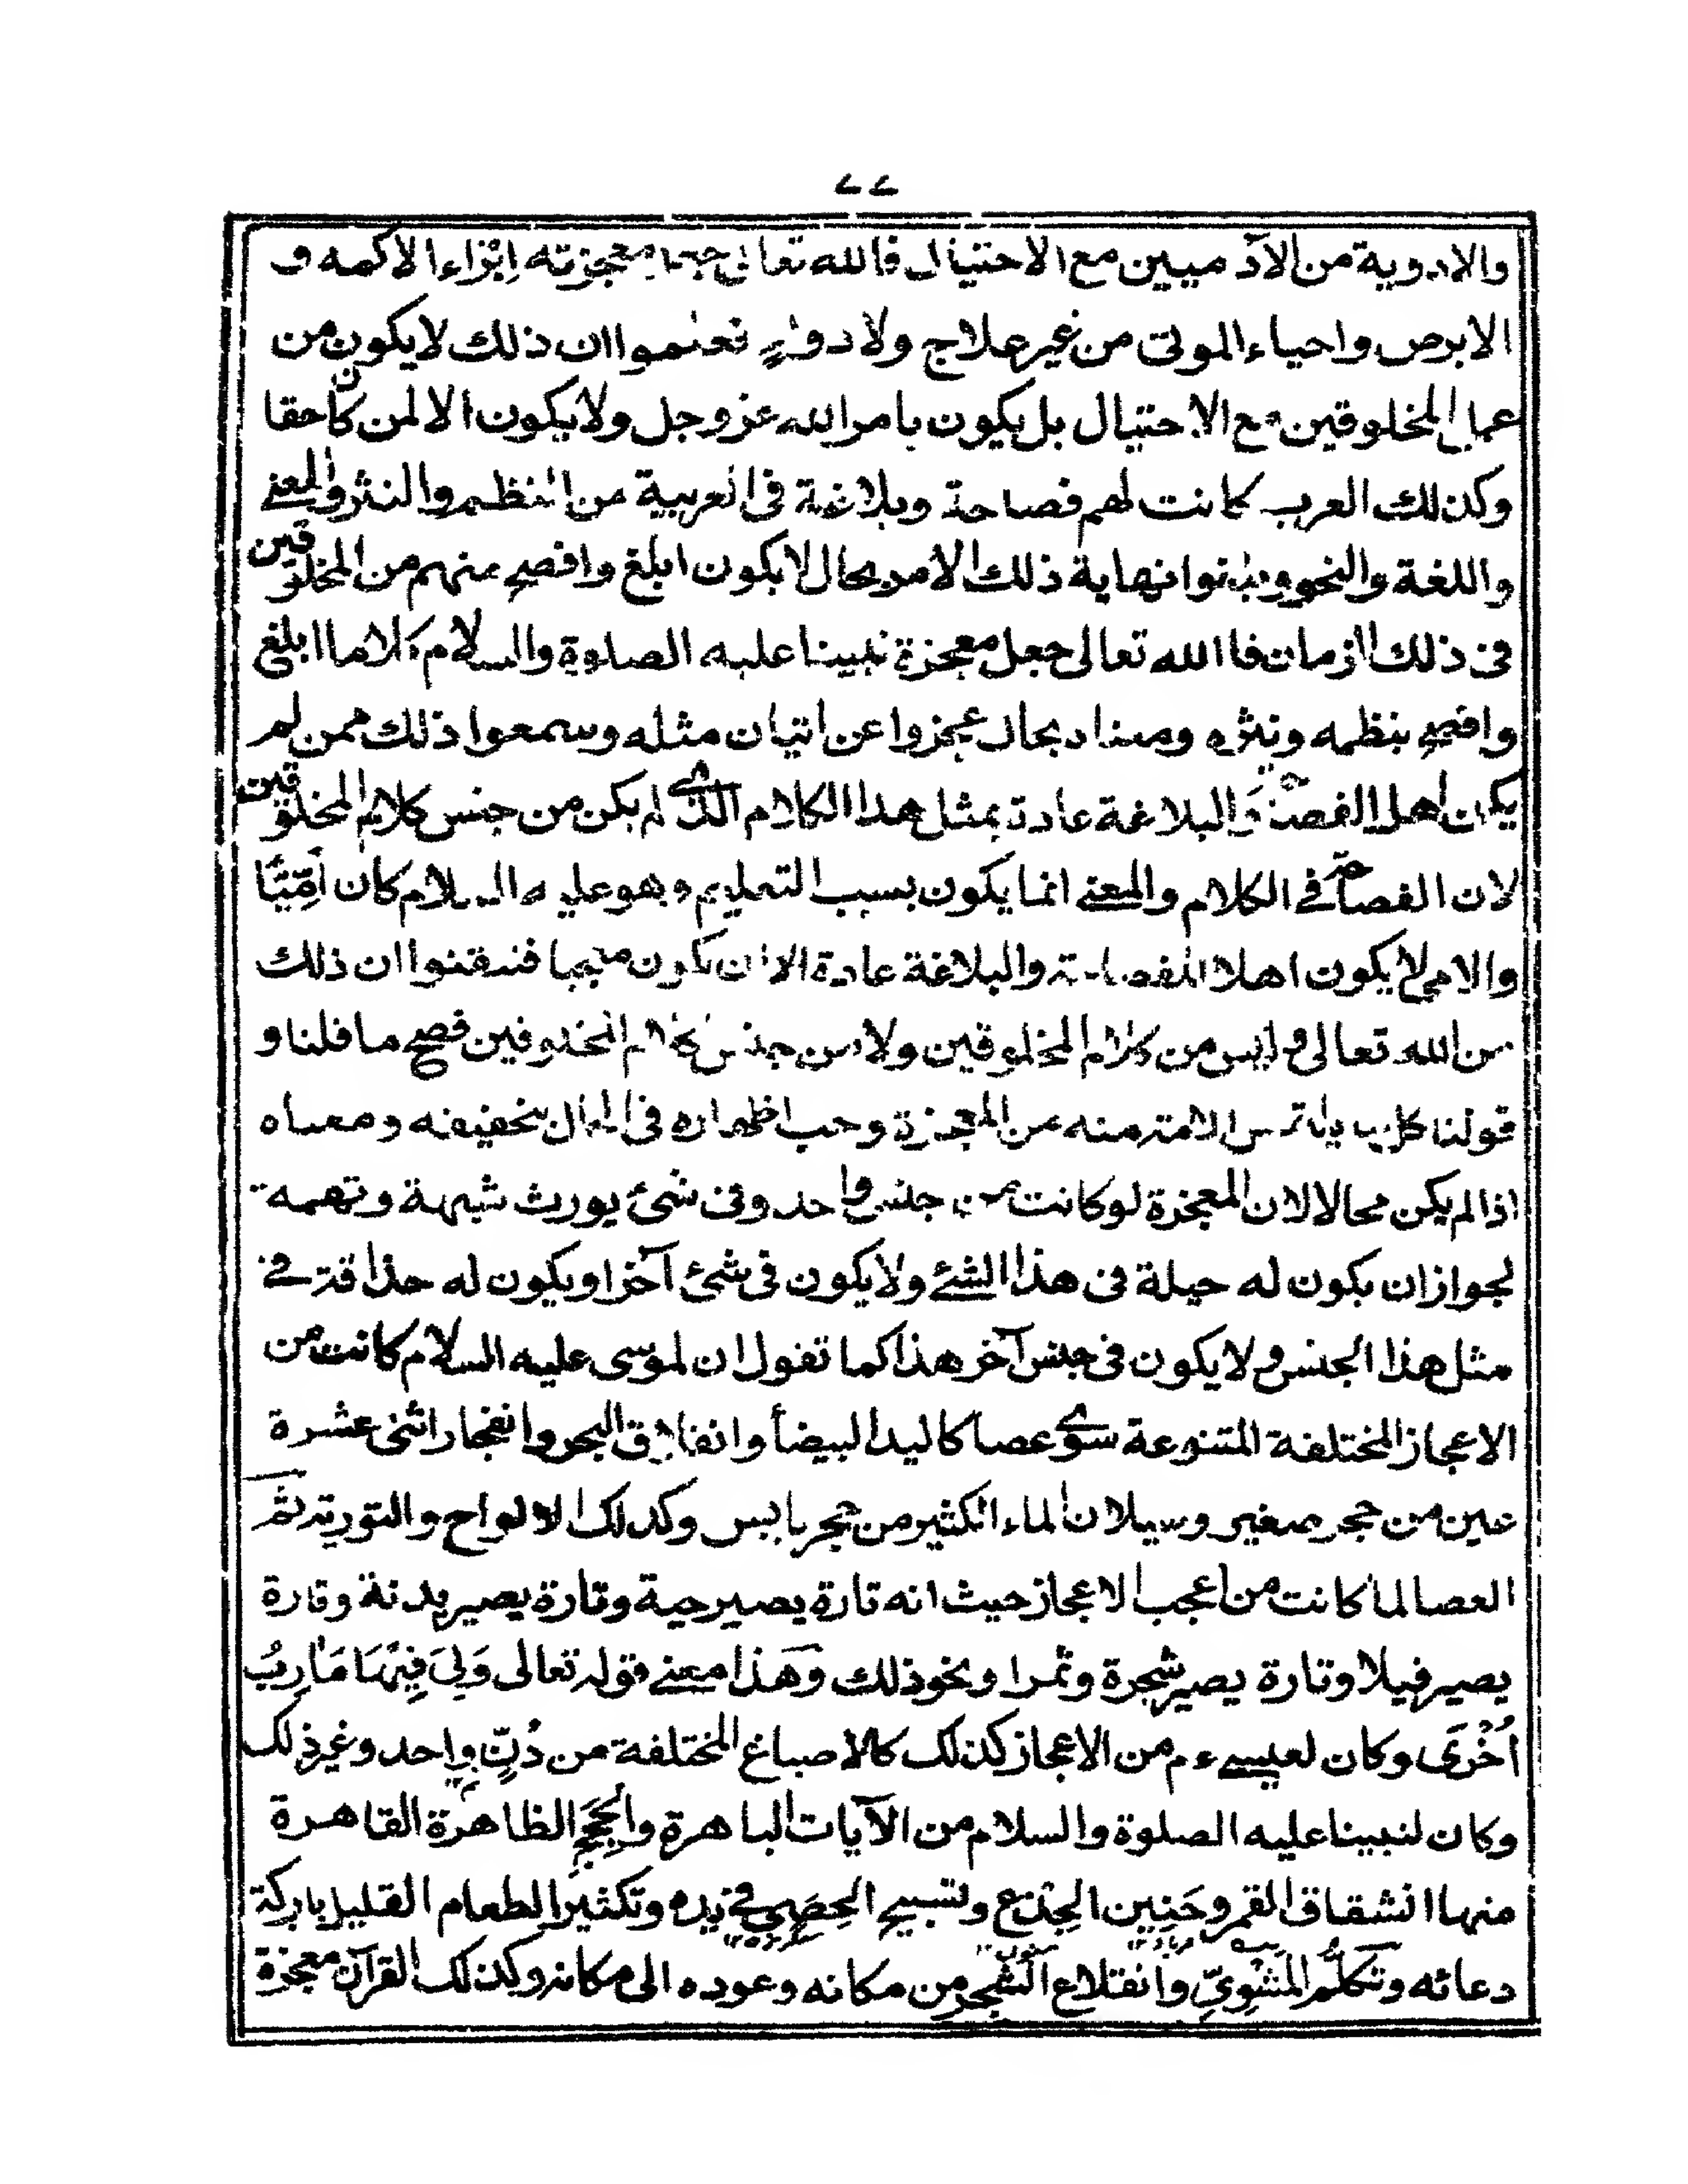 ٧٧
والادوية من الآدميين مع الاحتيال فالله تعالى جعل معجزته ابراء الاكمه و
الابرص واحياء الموتى من غير علاج ولا دواء فعلموا ان ذلك لا يكون من
عمل المخلوقين مع الاحتيال بل يكون بامر الله عز وجل ولا يكون الا لمن كان حقا
وكذلك العرب كانت لهم فصاحة وبلاغة فى العربية من النظم والنثر والمعنى
واللغة والنحو وبلغوا نهاية ذلك الامر بحال لا يكون ابلغ وافصح منهم من المخلوقين
فى ذلك الزمان فالله تعالى جعل معجزة نبينا عليه الصلوة والسلام كلاما ابلغ
وافصح بنظمه ونثره ومعناه بحال عجزوا عن اتيان مثله وسمعوا ذلك ممن لم
يكن اهل الفصاحة والبلاغة عادة بمثل هذا الكلام الذى لم يكن من جنس كلام المخلوقين
لان الفصاحة فى الكلام والمعنى انما يكون بسبب التعليم وهو عليه السلام كان اُمِّيًّا
والامى لا يكون اهلا للفصاحة والبلاغة عادة الا ان يكون فتيقنوا ان ذلك
من الله تعالى وليس من كلام المخلوقين ولا من جنس كلام المخلوقين فصح ما قلنا و
قولنا كل الامة منه من المعجزة وجب اظهاره فى الحال بتخفيفه ومعناه
اذا لم يكن محالا لان المعجزة لو كانت من جنس واحد وفى شئ يورث شبهة وتهمة
لجواز ان يكون له حيلة فى هذا الشئ ولا يكون فى شئ آخر او يكون له حذاقة فى
مثل هذا الجنس ولا يكون فى جنس آخر هذا كما تقول ان لموسى عليه السلام كانت من
الاعجاز المختلفة المتنوعة سوى عصا كاليد البيضأ وانفلاق البحر وانفجار اثنى عشرة
عين من حجر صغير وسيلان الماء الكثير من حجر يابس وكذلك الالواح والتورية ثم
العصا لما كانت من اعجب الاعجاز حيث انه تارة يصير حية وتارة يصير بدنة وتارة
يصير فيلا وتارة يصير شجرة وثمرا ونحو ذلك وهذا معنى قوله تعالى وَلِىَ فِيْهَا مَاٰرِبُ
اُخْرٰى وكان لعيسى ءم من الاعجاز كذلك كالاصباغ المختلفة من دُنٍّ واحد وغير ذلك
وكان لنبينا عليه الصلوة والسلام من الآيات الباهرة والحُجَجِ الظاهرة القاهرة
منها انشقاق القمر وحَنِين الجِذْع وتسبيح الحِصَى فى يده وتكثير الطعام القليل بابركة
دعائه وتكلُّم المَشْوِىّ وانقلاع الشجر من مكانه وعوده الى مكانه وكذلك القرآن معجزة